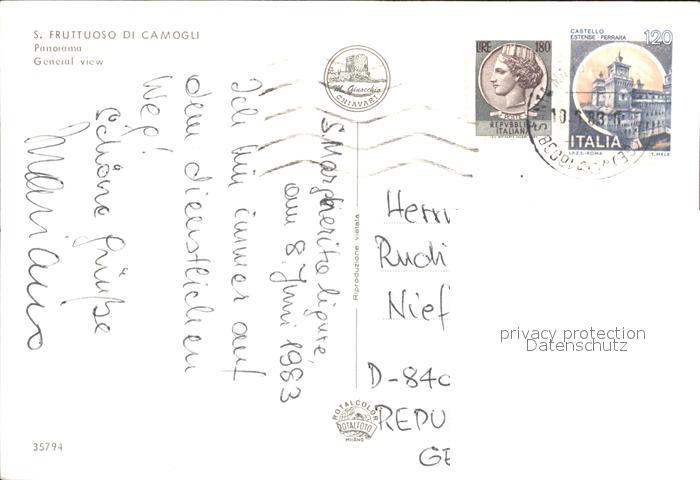 S. FRUTTUOSO DI CAMOGLI
Panorama
General view
M. Ginocchio
CHIAVARI
LIRE 180
POSTE
REPVBBLICA
ITALIANA
CASTELLO
ESTENSE - FERRARA
120
ITALIA
I.P.Z.S.-ROMA
T. MELE
S. Margherita ligure,
am 8 Juni 1983
Ich bin immer auf
dem dienstlichen
Weg!
Schöne Grüße
Mariano
Riproduzione vietata
Herrn
Rudi
Nief
D-840
REPU
GE
ROTALCOLOR
ROTALFOTO
MILANO
35794
privacy protection
Datenschutz